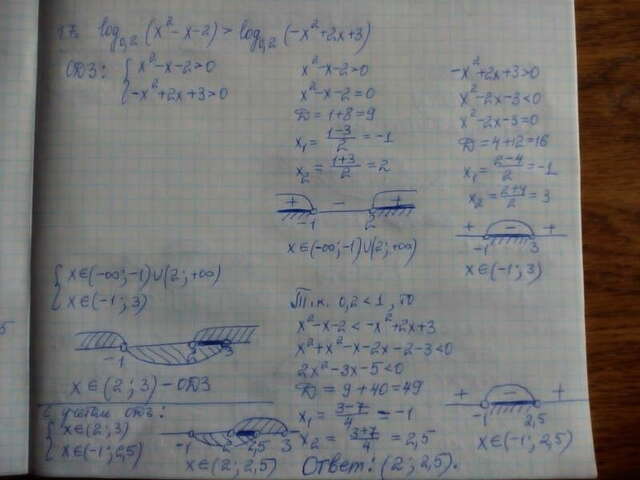 17. log₀,₂ (x²-x-2) > log₀,₂ (-x²+2x+3)
ОДЗ: { x²-x-2>0
-x²+2x+3>0
x²-x-2>0
x²-x-2=0
D=1+8=9
x₁ = (1-3)/2 = -1
x₂ = (1+3)/2 = 2
+ - +
-1 2
x∈(-∞;-1)∪(2;+∞)
-x²+2x+3>0
x²-2x-3<0
x²-2x-3=0
D=4+12=16
x₁ = (2-4)/2 = -1
x₂ = (2+4)/2 = 3
+ - +
-1 3
x∈(-1;3)
{ x∈(-∞;-1)∪(2;+∞)
x∈(-1;3)
-1 2 3
x∈(2;3)-ОДЗ
Т.к. 0,2<1, то
x²-x-2<-x²+2x+3
x²+x²-x-2x-2-3<0
2x²-3x-5<0
D=9+40=49
x₁ = (3-7)/4 = -1
x₂ = (3+7)/4 = 2,5
+ - +
-1 2,5
x∈(-1;2,5)
С учётом ОДЗ:
{ x∈(2;3)
x∈(-1;2,5)
-1 2 2,5 3
x∈(2;2,5)
Ответ: (2;2,5).